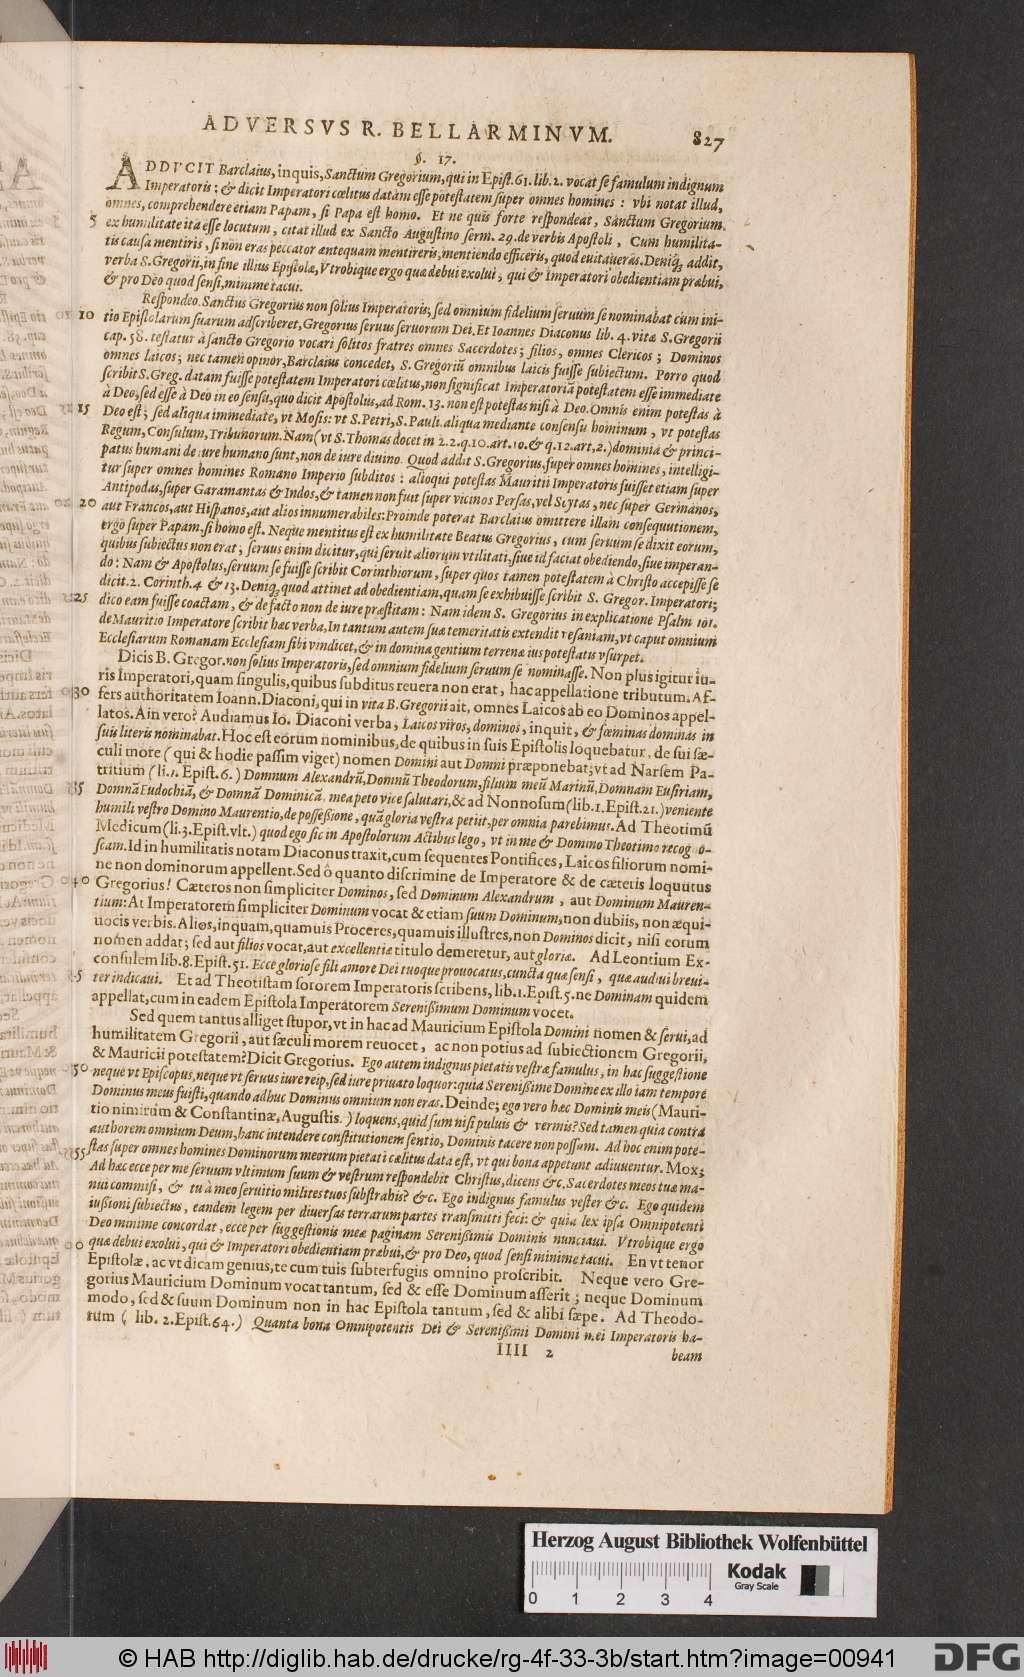 ADVERSVS R. BELLARMINVM. 827
§. 17.
ADDVCIT Barclaius, inquis, Sanctum Gregorium, qui in Epist. 61. lib. 2. vocat se famulum indignum
Imperatoris; & dicit Imperatori cœlitus datam esse potestatem super omnes homines : vbi notat illud,
omnes, comprehendere etiam Papam, si Papa est homo. Et ne quis forte respondeat, Sanctum Gregorium
5 ex humilitate ita esse locutum, citat illud ex Sancto Augustino serm. 29. de verbis Apostoli, Cum humilita-
tis causa mentiris, si non eras peccator antequam mentireris, mentiendo efficeris, quod euitaueras. Deniq; addit,
verba S. Gregorii, in fine illius Epistolæ, Vtrobique ergo quæ debui exolui, qui & Imperatori obedientiam præbui,
& pro Deo quod sensi, minime tacui.
Respondeo. Sanctus Gregorius non solius Imperatoris, sed omnium fidelium seruum se nominabat cum ini-
10 tio Epistolarum suarum adscriberet, Gregorius seruus seruorum Dei. Et Ioannes Diaconus lib. 4. vitæ S. Gregorii
cap. 58. testatur à sancto Gregorio vocari solitos fratres omnes Sacerdotes; filios, omnes Clericos ; Dominos
omnes laicos; nec tamen opinor, Barclaius concedet, S. Gregoriũ omnibus laicis fuisse subiectum. Porro quod
scribit S. Greg. datam fuisse potestatem Imperatori cœlitus, non significat Imperatoriã potestatem esse immediate
à Deo, sed esse à Deo in eo sensu, quo dicit Apostolus, ad Rom. 13. non est potestas nisi à Deo. Omnis enim potestas à
15 Deo est; sed aliqua immediate, vt Mosis: vt S. Petri, S. Pauli. aliqua mediante consensu hominum, vt potestas
Regum, Consulum, Tribunorum. Nam (vt S. Thomas docet in 2. 2. q. 10. art. 10. & q. 12. art. 2.) dominia & princi-
patus humani de iure humano sunt, non de iure diuino. Quod addit S. Gregorius, super omnes homines, intelligi-
tur super omnes homines Romano Imperio subditos : alioqui potestas Mauritii Imperatoris fuisset etiam super
Antipodas, super Garamantas & Indos, & tamen non fuit super vicinos Persas, vel Scytas, nec super Germanos,
20 aut Francos, aut Hispanos, aut alios innumerabiles: Proinde poterat Barclaius omittere illam consequutionem,
ergo super Papam, si homo est. Neque mentitus est ex humilitate Beatus Gregorius, cum seruum se dixit eorum,
quibus subiectus non erat; seruus enim dicitur, qui seruit aliorum vtilitati, siue id faciat obediendo, siue imperan-
do: Nam & Apostolus, seruum se fuisse scribit Corinthiorum, super quos tamen potestatem à Christo accepisse se
dicit. 2. Corinth. 4 & 13. Deniq; quod attinet ad obedientiam, quam se exhibuisse scribit S. Gregor. Imperatori;
25 dico eam fuisse coactam, & de facto non de iure præstitam: Nam idem S. Gregorius in explicatione Psalm 101.
de Mauritio Imperatore scribit hæc verba, In tantum autem suæ temeritatis extendit vesaniam, vt caput omnium
Ecclesiarum Romanam Ecclesiam sibi vindicet, & in domina gentium terrenæ ius potestatis vsurpet.
Dicis B. Gregor. non solius Imperatoris, sed omnium fidelium seruum se nominasse. Non plus igitur iu-
ris Imperatori, quam singulis, quibus subditus reuera non erat, hac appellatione tributum. Af-
30 fers authoritatem Ioann. Diaconi, qui in vita B. Gregorii ait, omnes Laicos ab eo Dominos appel-
latos. Ain vero? Audiamus Io. Diaconi verba, Laicos viros, dominos, inquit, & fœminas dominas in
suis literis nominabat. Hoc est eorum nominibus, de quibus in suis Epistolis loquebatur, de sui sæ-
culi more (qui & hodie passim viget) nomen Domini aut Domni præponebat; vt ad Narsem Pa-
tritium (li. 1. Epist. 6.) Domnum Alexandrũ, Domnũ Theodorum, filium meũ Marinũ, Domnam Eusiriam,
35 Domnã Eudochiã, & Domnã Dominicã, mea peto vice salutari, & ad Nonnosum (lib. 1. Epist. 21.) veniente
humili vestro Domino Maurentio, de possessione, quã gloria vestra petiit, per omnia parebimus. Ad Theotimũ
Medicum (li. 3. Epist. vlt.) quod ego sic in Apostolorum Actibus lego, vt in me & Domino Theotimo recogno-
scam. Id in humilitatis notam Diaconus traxit, cum sequentes Pontifices, Laicos filiorum nomi-
ne non dominorum appellent. Sed ô quanto discrimine de Imperatore & de cæteris loquutus
40 Gregorius! Cæteros non simpliciter Dominos, sed Dominum Alexandrum, aut Dominum Mauren-
tium: At Imperatorem simpliciter Dominum vocat & etiam suum Dominum, non dubiis, non æqui-
uocis verbis. Alios, inquam, quamuis Proceres, quamuis illustres, non Dominos dicit, nisi eorum
nomen addat; sed aut filios vocat, aut excellentiæ titulo demeretur, aut gloriæ. Ad Leontium Ex-
consulem lib. 8. Epist. 51. Ecce gloriose fili amore Dei tuoque prouocatus, cuncta quæ sensi, quæ audiui breui-
45 ter indicaui. Et ad Theotistam sororem Imperatoris scribens, lib. 1. Epist. 5. ne Dominam quidem
appellat, cum in eadem Epistola Imperatorem Serenissimum Dominum vocet.
Sed quem tantus alliget stupor, vt in hac ad Mauricium Epistola Domini nomen & serui, ad
humilitatem Gregorii, aut sæculi morem reuocet, ac non potius ad subiectionem Gregorii,
& Mauricii potestatem? Dicit Gregorius. Ego autem indignus pietatis vestræ famulus, in hac suggestione
50 neque vt Episcopus, neque vt seruus iure reip, sed iure priuato loquor: quia Serenissime Domine ex illo iam tempore
Dominus meus fuisti, quando adhuc Dominus omnium non eras. Deinde; ego vero hæc Dominis meis (Mauri-
tio nimirum & Constantinæ, Augustis.) loquens, quid sum nisi puluis & vermis? Sed tamen quia contra
authorem omnium Deum, hanc intendere constitutionem sentio, Dominis tacere non possum. Ad hoc enim pote-
55 stas super omnes homines Dominorum meorum pietati cælitus data est, vt qui bona appetunt adiuuentur. Mox;
Ad hæc ecce per me seruum vltimum suum & vestrum respondebit Christus, dicens &c. Sacerdotes meos tuæ ma-
nui commisi, & tu à meo seruitio milites tuos subtrahis? &c. Ego indignus famulus vester &c. Ego quidem
iussioni subiectus, eandem legem per diuersas terrarum partes transmitti feci: & quia lex ipsa Omnipotenti
Deo minime concordat, ecce per suggestionis meæ paginam Serenissimis Dominis nunciaui. Vtrobique ergo
quæ debui exolui, qui & Imperatori obedientiam præbui, & pro Deo, quod sensi minime tacui. En vt tenor
Epistolæ, ac vt dicam genius, te cum tuis subterfugiis omnino proscribit. Neque vero Gre-
gorius Mauricium Dominum vocat tantum, sed & esse Dominum asserit; neque Dominum
modo, sed & suum Dominum non in hac Epistola tantum, sed & alibi sæpe. Ad Theodo-
rum (lib. 2. Epist. 64.) Quanta bona Omnipotentis Dei & Serenissimi Domini mei Imperatoris ha-
IIII 2 beam
Herzog August Bibliothek Wolfenbüttel
Kodak
Gray Scale
0 1 2 3 4
© HAB http://diglib.hab.de/drucke/rg-4f-33-3b/start.htm?image=00941
DFG